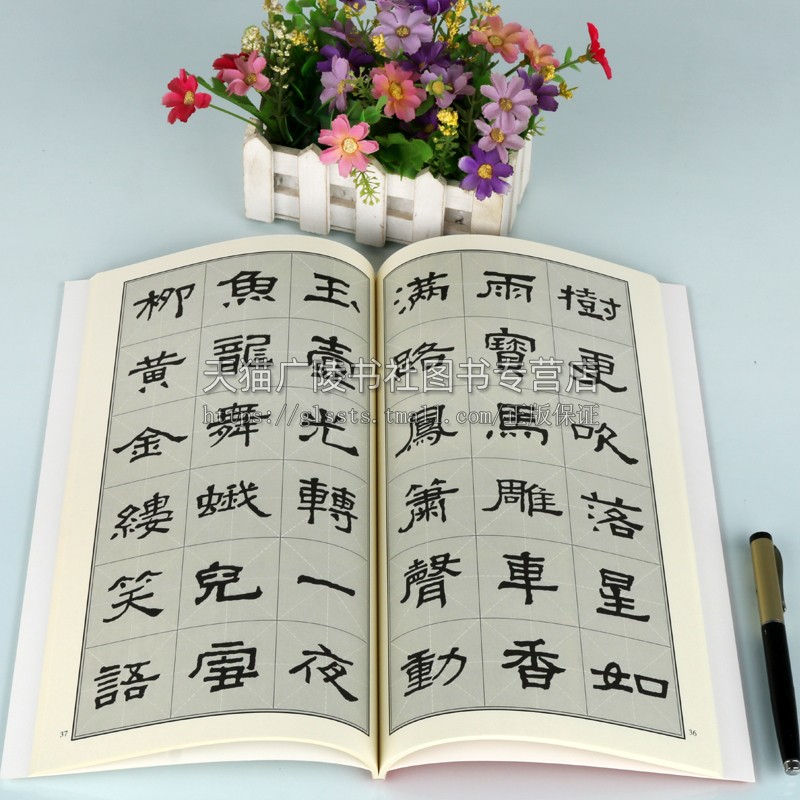 樹更吹落星如
雨寶馬雕車香
滿路鳳簫聲動
36
玉壺光轉一夜
魚龍舞蛾兒雪
柳黃金縷笑語
37
天猫广陵书社图书专营店
https://glssts.tmall.com/正版保证